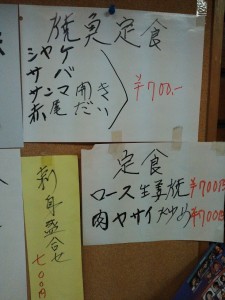 焼魚定食
シャケ
サバ
サンマ開き
赤尾だい
¥700.-
定食
ロース生姜焼 ¥700円
肉ヤサイ炒め ¥700円
刺身盛合せ
七〇〇円